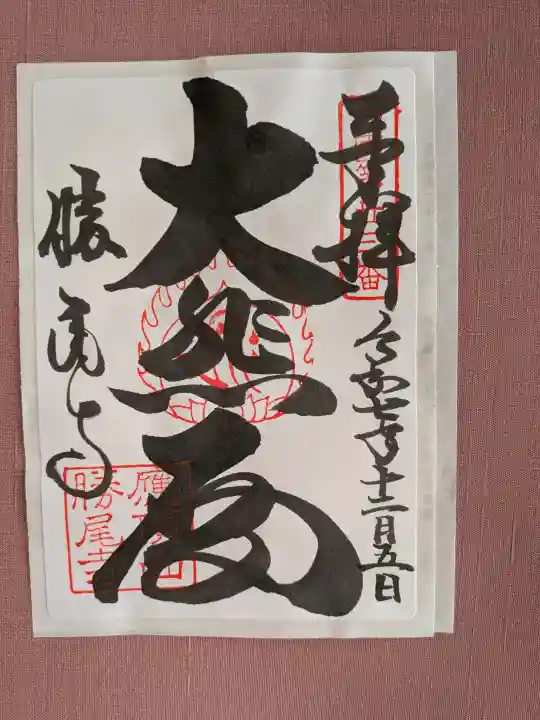 奉拝
令和七年十二月五日
大悲殿
勝尾寺
勝尾寺